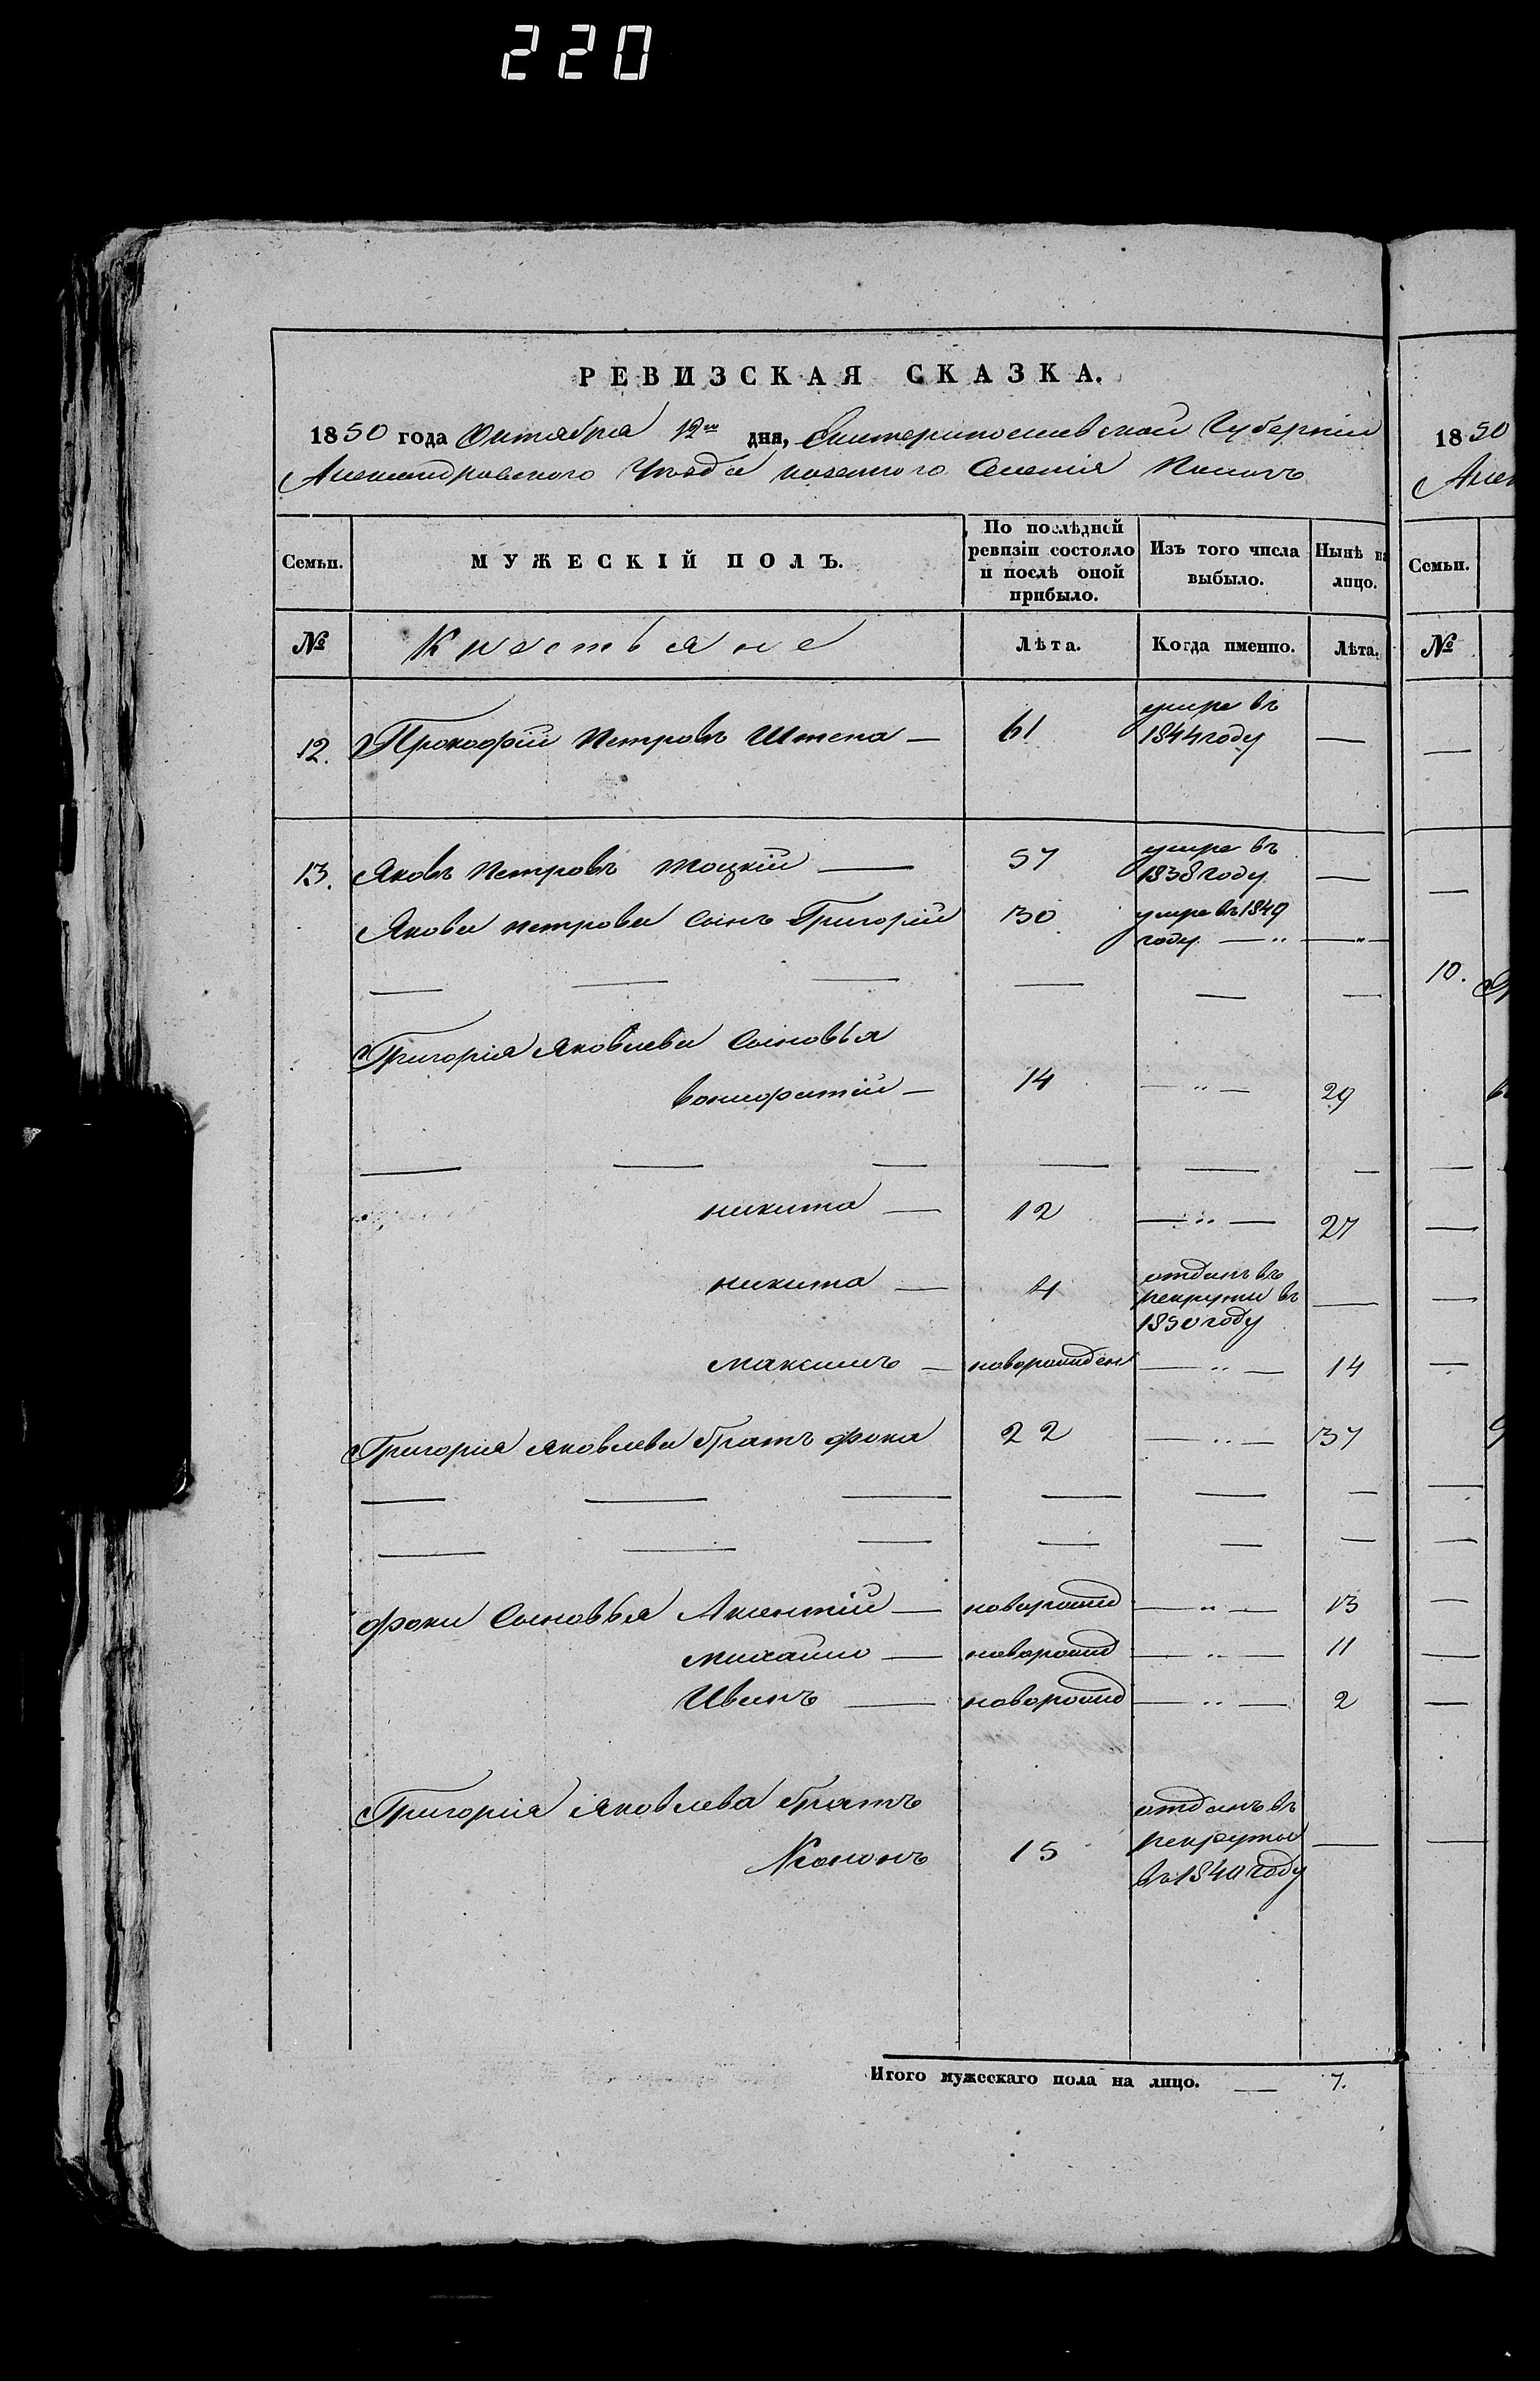 220
РЕВИЗСКАЯ СКАЗКА.
1850 года Октября 12го дня, Екатеринославской Губернии
Александровского Уезда казенного Селения
Семьи.
МУЖЕСКІЙ ПОЛЪ.
По послѣдней ревизіи состояло и послѣ оной прибыло.
Изъ того числа выбыло.
Нынѣ на лицо.
№ Крестьяне Лѣта. Когда именно. Лѣта.
12. Прокофій Петровъ Штепа — 61 умре въ 1844 году —
13. Яковъ Петровъ Тоцкій — 57 умре въ 1838 году —
Якова Петрова Сынъ Григорій 30 умре въ 1849 году — " — " —
— — — — — —
Григорія Яковлева Сыновья
Вонифатій — 14 — " — 29
— — — — — —
никита — 12 — " — 27
никита — 4 отданъ въ рекруты въ 1850 году —
максимъ — новорожден — " — 14
Григорія Яковлева братъ фока 22 — " — 37
— — — — — —
— — — — — —
фоки Сыновья Аксентій — новорожд — " — 13
михайло — новорожд — " — 11
Иванъ — новорожд — " — 2
Григорія Яковлева братъ
Кононъ 15 отданъ въ рекруты въ 1840 году —
Итого мужескаго пола на лицо. — 7.
1850
Але
Семьи.
№
10.